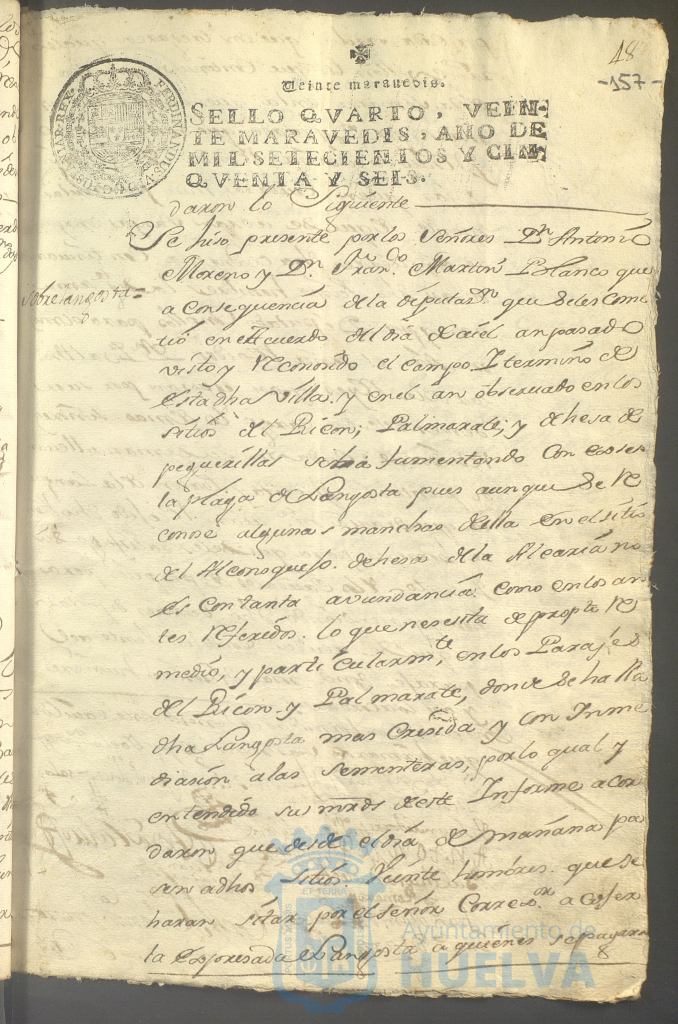 48
-157-
Veinte maravedis.
SELLO QVARTO, VEIN-
TE MARAVEDIS, AÑO DE
MIL SETECIENTOS Y CIN-
QVENTA Y SEIS.
daron lo Siguiente
Se hiso presente por los Señores Dn Antonio
Moreno y Dn Fran.co Martin Blanco que
sobre langosta =
a Consequencia de la diputasn que se les Come
tió en Acuerdo del dia an pasado
visto y reconosido el Campo Y termino de
esta dha Villa. y en el an observado en los
sitios del Ricon; Palmarate; y dehesa de
pequerillas se ha fumentando Con
la plaga de Langosta pues aunque se re
conose algunas manchas de ella en el sitio
del Alcornoquejo. dehesa de la Alcaria no
es Con tanta avundancia como en los an
tes referidos. lo que necesita de propto re
medio, y particularmte en los Parajes
del Ricon y Palmarate, donde se halla
dha Langosta mas Cresida y con Inme
diasion a las sementeras, por lo qual y
entendido sus mrds de este Informe acor
daron que desde el dia de mañana pa
sen a dhos sitios Veinte hombres que se
haran sitar por el señor Corregor a Coger
la Expresada Langosta a quienes se pagara
Ayuntamiento de
HUELVA